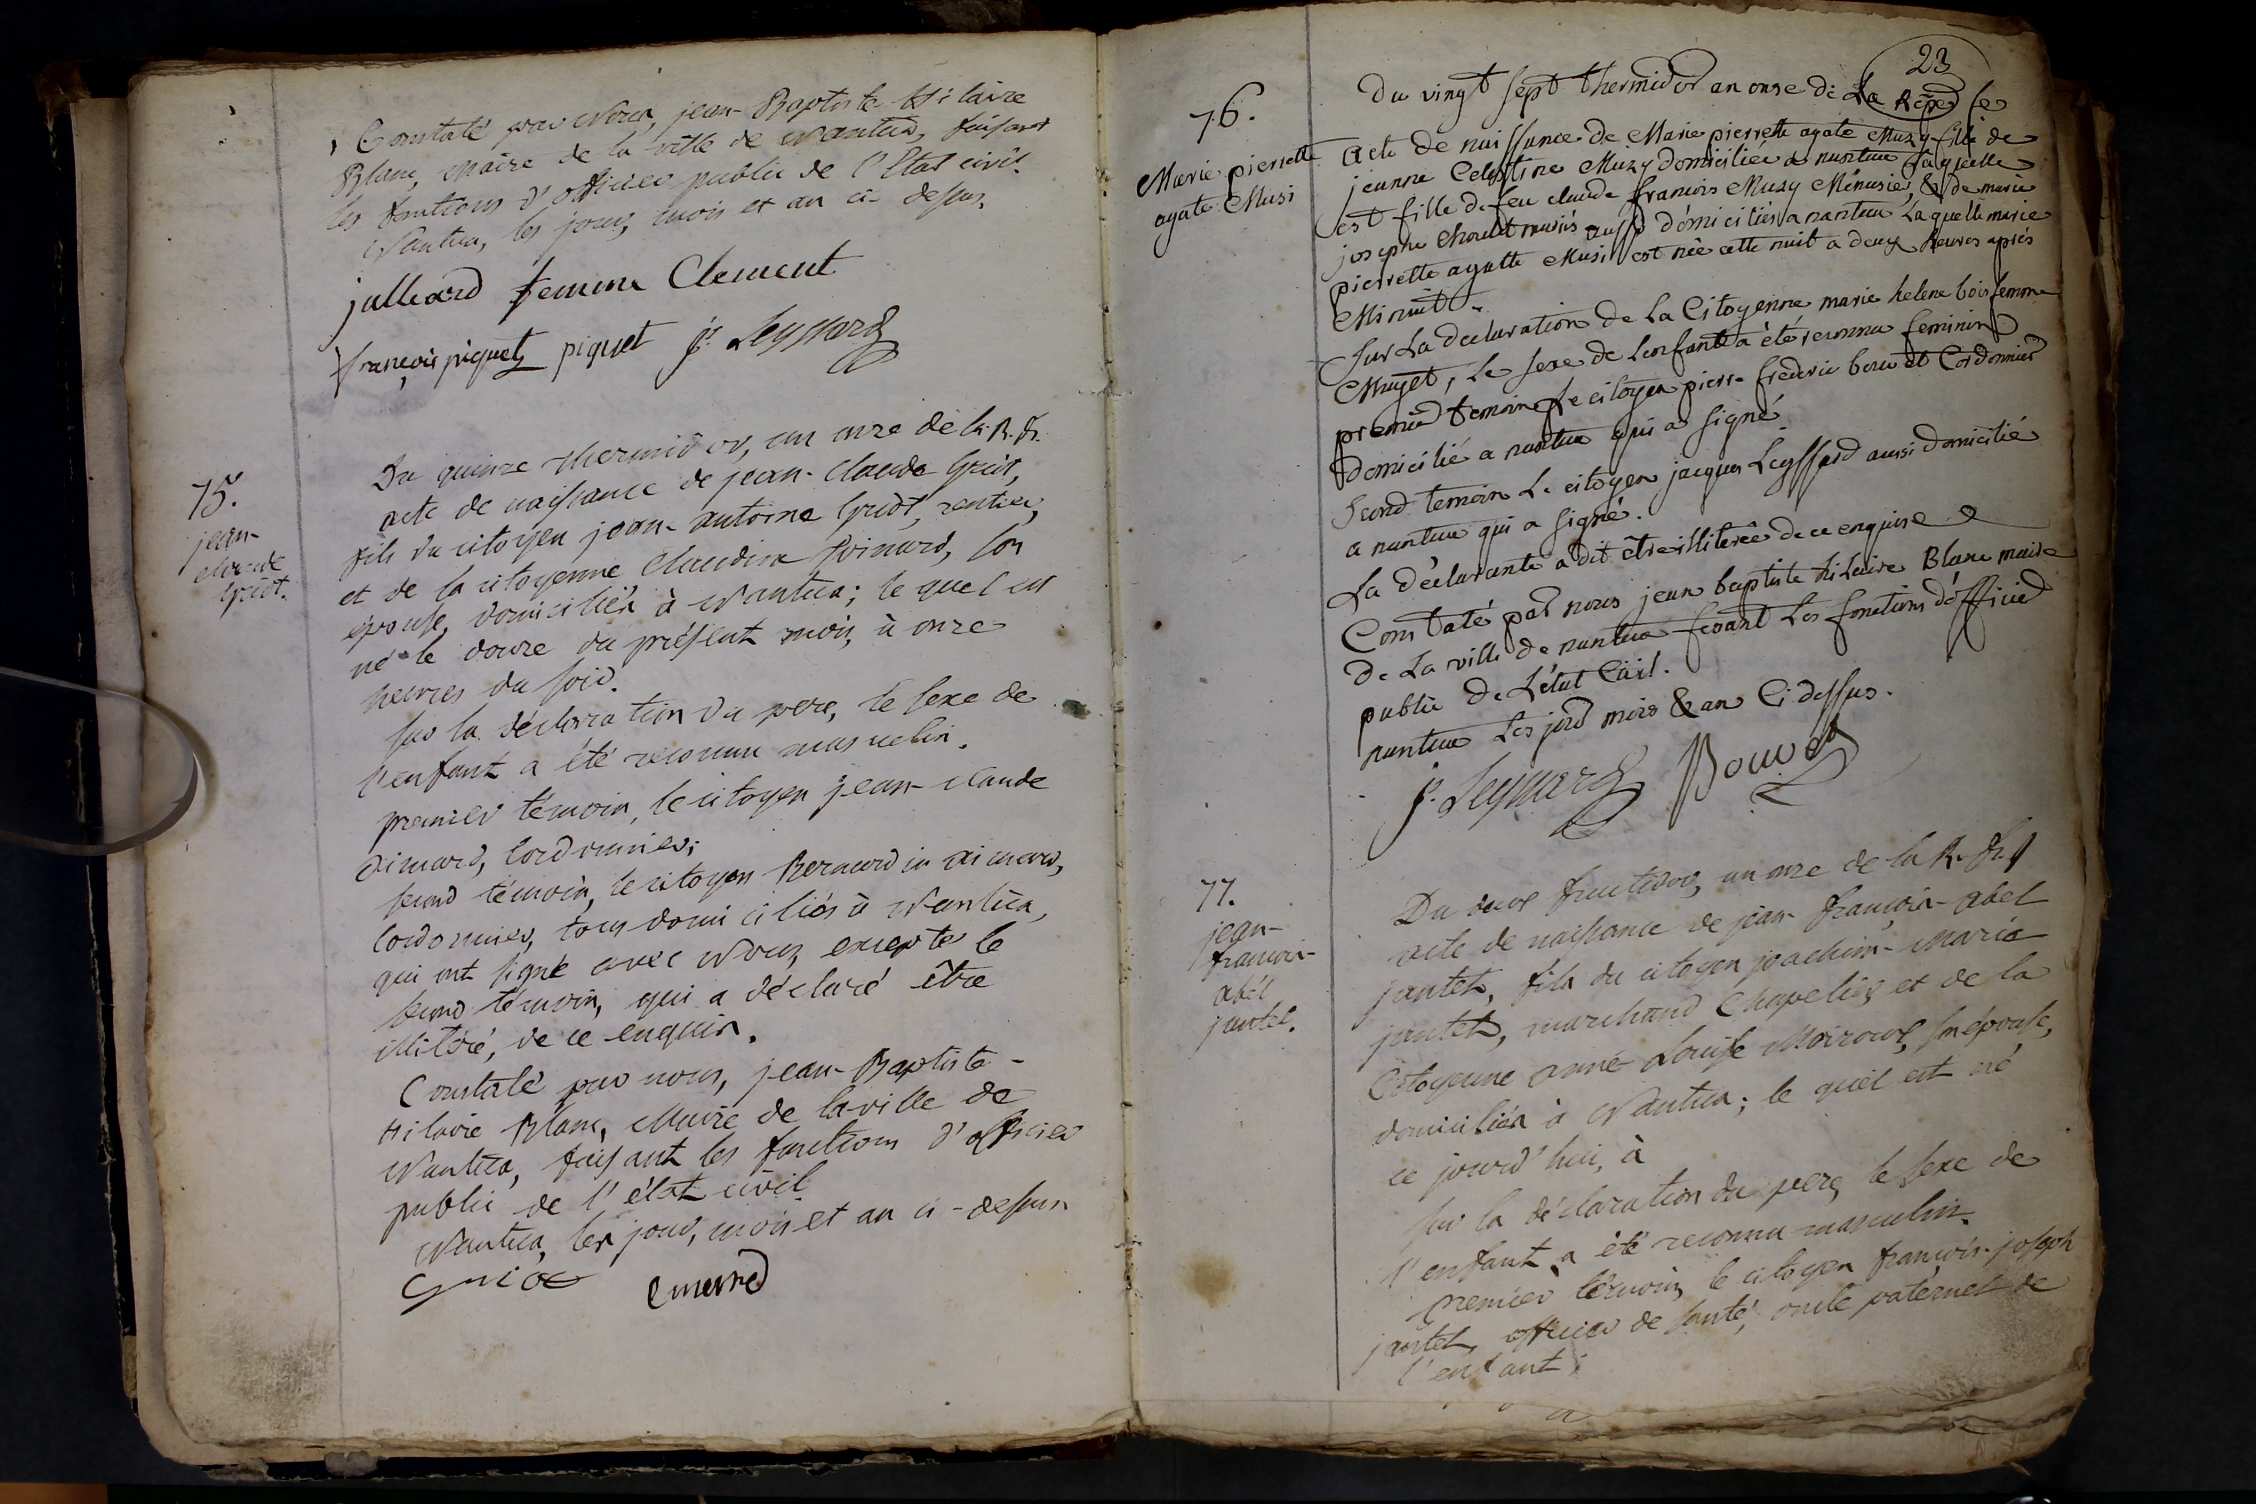 Constaté par Nous, jean-Baptiste Hilaire
Blanc, Maire de la ville de Nantua, faisant
les fonctions d'officier public de l'Etat civil.
Nantua, les jour, mois et an ci-dessus.
julliard femme Clement
françois piquet piquet j. Leyssard
75.
jean-
claude
Griot.
Du quinze thermidor, an onze de la R. fr.
acte de naissance de jean-Claude Griot,
fils du citoyen jean-antoine Griot, rentier,
et de la citoyenne Claudine son
épouse, domiciliés à Nantua; le quel est
né le douze du présent mois, à onze
heures du soir.
sur la déclaration du pere, le sexe de
l'enfant a été reconnu masculin.
premier témoin, le citoyen jean-claude
aimard, cordonnier;
second témoin, le citoyen Bernardin aimard,
cordonnier, tous domiciliés à Nantua,
qui ont signé avec Nous, excepté le
second témoin, qui a déclaré être
illitéré, de ce enquis.
Constaté par nous, jean-Baptiste-
Hilaire Blanc, Maire de la ville de
Nantua, faisant les fonctions d'officier
public de l'état civil.
Nantua, les jour, mois et an ci-dessus
Griot
23
76.
Marie pierrette
agate Musi
Du vingt sept thermidor an onze de La Rép
Acte de naissance de Marie pierrette agate Muzy fille de
jeanne Celestine Muzy domiciliée a nantua Laquelle
est fille de feu claude francois Muzy Menusié, & de marie
josephe mariés aussi domiciliés a nantua Laquelle marie
pierrette agatte Musi est née cette nuit a deux heures après
Minuit.
Sur La declaration de La Citoyenne marie helene bois femme
Muyet, Le sexe de Lenfant a été reconnu feminin
premier temoin Le citoyen pierre frederic bouvet Cordonnier
domicilié a nantua qui a signé.
Second temoin Le citoyen jacques Leyssard aussi domicilié
a nantua qui a signé.
La déclarante a dit être illiterée de ce enquise
Constaté par nous jean baptiste hilaire Blanc maire
de La ville de nantua fesant Les fonctions d'officier
public de L'état Civil.
nantua Les jour mois & an Ci dessus.
j. Leyssard Bouvet
77.
jean-
francois-
abél
jantet.
Du deux fructidor, an onze de la R. fr.
acte de naissance de jean-françois-abel
jantet, fils du citoyen joachim-Marie
jantet, marchand Chapelier, et de la
Citoyenne anne Louise son épouse,
domiciliés à Nantua; le quel est né
ce jourd'hui, à
sur la déclaration du pere, le sexe de
l'enfant a été reconnu masculin.
premier témoin, le citoyen françois-joseph
jantet, officier de santé, oncle paternel de
l'enfant;